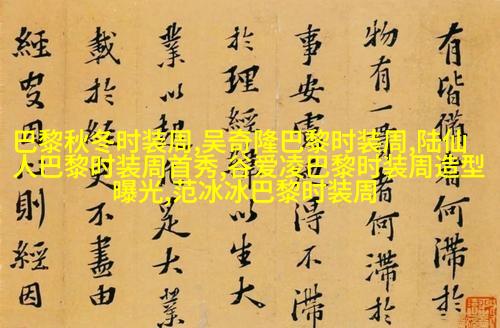 巴黎秋冬时装周,吴奇隆巴黎时装周,陆仙
人巴黎时装周首秀,谷爱凌巴黎时装周造型
曝光,范冰冰巴黎时装周
有皆何滯於
物有一者何滯於
事安得不滯
於理經以生大
業以足大業
載於不盡由
經則經因